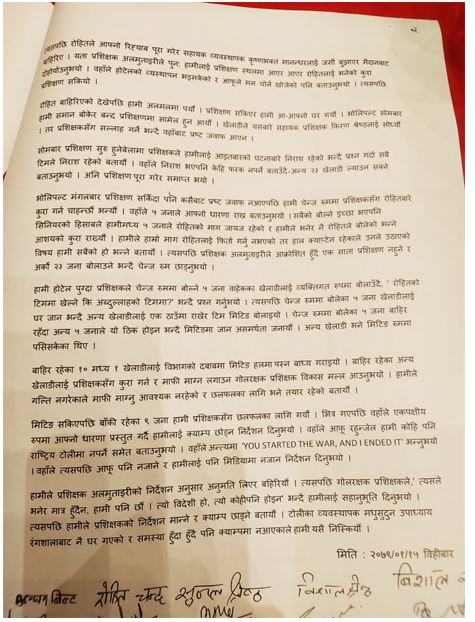 २
त्यसपछि रोहितले आफ्नो रिह्याब पूरा गरेर सहायक व्यवस्थापक कृष्णभक्त मानन्धरलाई जर्सी बुझाएर मैदानबाट
बाहिरिए । यता प्रशिक्षक अलमुताइरीले पुन: हामीलाई प्रशिक्षण स्थलमा आएर आएर रोहितलाई भनेको कुरा
दोहोर्याउनुभयो । वहाँले होटेलको व्यवस्थापन भइसकेको र आफूले मन चोर्न खोजेको पनि बताउनुभयो । त्यसपछि
प्रशिक्षण सकियो ।
रोहित बाहिरिएको देखेपछि हामी अलमलमा पर्यौं । प्रशिक्षण सकिएर हामी आ-आफ्नो घर गयौं । भोलिपल्ट सोमबार
हामी समान बोकेर बन्द प्रशिक्षणमा सामेल हुन आयौं । खेलाडीले यसबारे सहायक प्रशिक्षक किरण श्रेष्ठलाई सोध्यौं
। तर प्रशिक्षकसँग सल्लाह गर्न भन्दै वहाँबाट प्रष्ट जवाफ आएन ।
सोमबार प्रशिक्षण सुरु हुनेबेलामा प्रशिक्षकले हामीलाई आइतबारको घटनाबारे निराश रहेको भन्दै प्रश्न गर्दा सबै
टिमले निराश रहेको बतायौं । वहाँले निराश भएपनि केहि फरक नपर्ने बताउँदै-अन्य २३ खेलाडी ल्याउन सक्ने
बताउनुभयो । अनि प्रशिक्षण पूरा गरेर समाप्त भयो ।
भोलिपल्ट मंगलबार प्रशिक्षण सकिँदा पनि कसैबाट प्रष्ट जवाफ नआएपछि हामी चेन्ज रुममा प्रशिक्षकसँग रोहितबारे
कुरा गर्न चाहन्छौँ भन्यौं । वहाँले ५ जनाले आफ्नो धारणा राख्न बताउनुभयो ।सबैको बोल्ने इच्छा भएपनि
सिनियरको हिसाबले हामीमध्ये ५ जनाले रोहितको माग जायज रहेको र हामीले भनेर नै रोहितले बोलेको भन्ने
आशयको कुरा राख्यौं । हामीले हाम्रो माग रोहितलाई फिर्ता गर्नु नभएको तर हाल क्याप्टेन रहेकाले उनले उठाएको
विषय हामी सबैको हो भन्ने बतायौं । त्यसपछि प्रशिक्षक अलमुताइरीले आक्रोशित हुँदै एक साता प्रशिक्षण नहुने र
अर्को २३ जना बोलाउने भन्दै चेन्ज रुम छाड्नुभयो ।
हामी होटेल पुग्दा प्रशिक्षकले चेन्ज रुममा बोल्ने ५ जना वाहेका खेलाडीलाई व्यक्तिगत रुपमा बोलाउँदै, ' रोहितको
टिममा खेल्ने कि अब्दुल्लाहको टिममा?' भन्दै प्रश्न गर्नुभयो । त्यसपछि चेन्ज रुममा बोलेका ५ जना खेलाडीलाई
घर जान भन्दै अन्य खेलाडीलाई एक ठाउँमा राखेर टिम मिटिङ बोलाइयो । चेन्ज रुममा बोलेका ५ जना बाहिर
रहँदा अन्य ५ जनाले यो ठिक होइन भन्दै मिटिङमा जान असमर्थता जनायौं । अन्य खेलाडी भने मिटिङ रुममा
पसिसकेका थिए ।
बाहिर रहेका १० मध्य १ खेलाडीलाई विभागको दबाबमा मिटिङ हलमा पस्न बाध्य गराइयो । बाहिर रहेका अन्य
खेलाडीलाई प्रशिक्षकसँग कुरा गर्न र माफी माग्न लगाउन गोलरक्षक प्रशिक्षक विकास मल्ल आउनुभयो । हामीले
गल्ति नगरेकाले माफी माग्नु आवश्यक नरहेको र छलफलका लागि भने तयार रहेको बतायौं ।
मिटिङ सकिएपछि बाँकी रहेका ९ जना हामी प्रशिक्षकसँग छलफलका लागि गयौं । भित्र गएपछि वहाँले एकपक्षीय
रुपमा आफ्नो धारणा प्रस्तुत गर्दै हामीलाई क्याम्प छोड्न निर्देशन दिनुभयो । वहाँले आफू रहुन्जेल हामी कोहि पनि
राष्ट्रिय टोलीमा नपर्ने समेत बताउनुभयो । वहाँले अन्त्यमा 'YOU STARTED THE WAR, AND I ENDED IT' भन्नुभयो
। वहाँले त्यसपछि आफू पनि नजाने र हामीलाई पनि मिडियामा नजान निर्देशन दिनुभयो ।
हामीले प्रशिक्षक अलमुताइरीको निर्देशन अनुसार अनुमति लिएर बहिरियौं । त्यसपछि गोलरक्षक प्रशिक्षकले,' त्यसले
भनेर मात्र हुँदैन, हामी पनि छौं । त्यो विदेशी हो, त्यो कोहीपनि होइन' भन्दै हामीलाई सहानुभूति दिनुभयो ।
त्यसपछि हामीले प्रशिक्षकको निर्देशन मान्ने र क्याम्प छाड्ने बतायौं । टोलीका व्यवस्थापक मधुसुदन उपाध्याय
रंगशालाबाट नै घर गएको र समस्या हुँदा हुँदै पनि क्याम्पमा नआएकाले हामी यसै निस्कियौं ।
मिति : २०७९/०१/१५ विहीबार
अञ्जन बिष्ट रोहित चन्द सुजल श्रेष्ठ विशाल श्रेष्ठ बिशाल